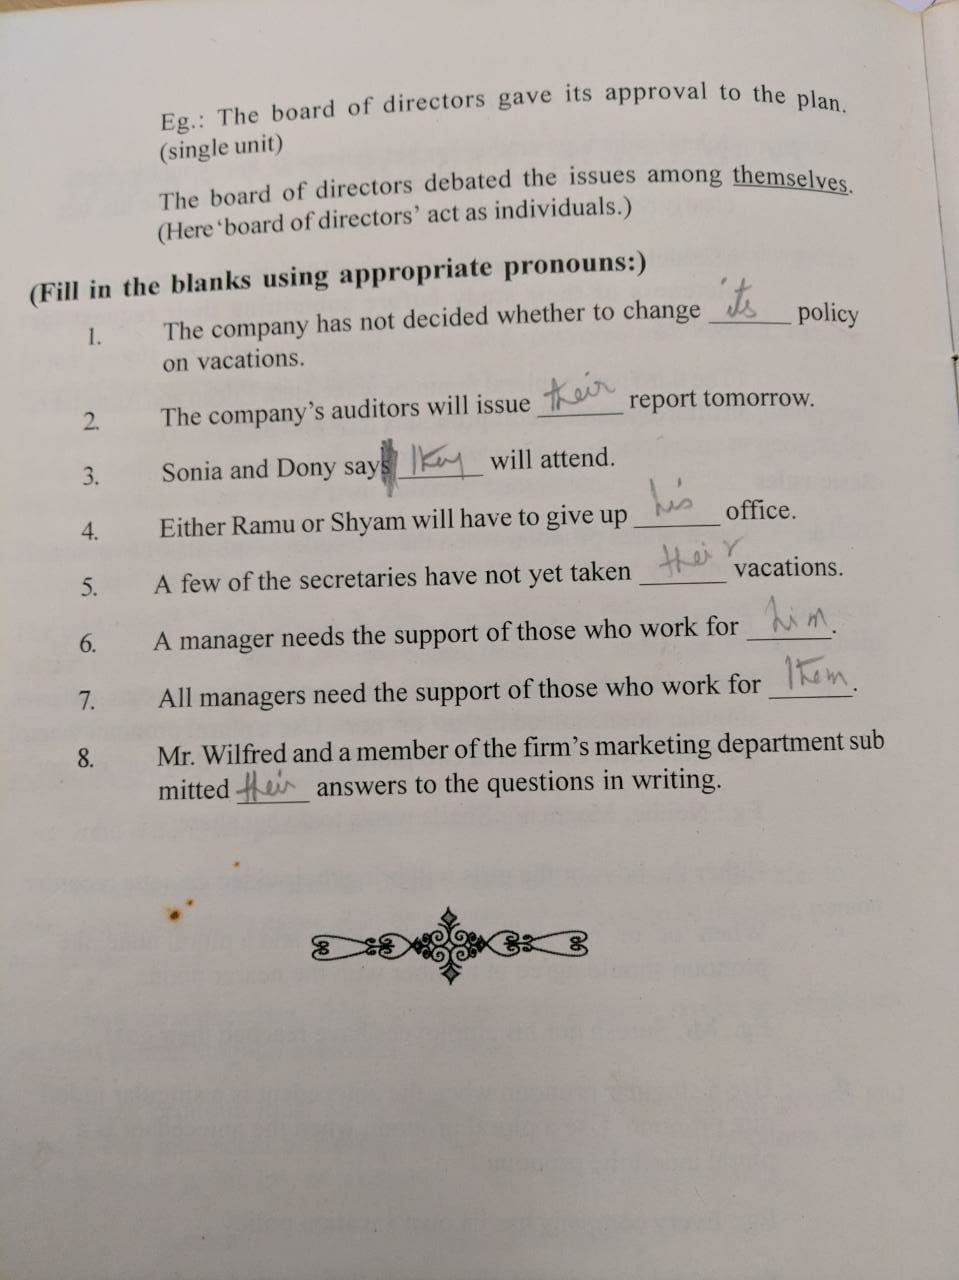 Eg.: The board of directors gave its approval to the plan.
(single unit)
The board of directors debated the issues among themselves.
(Here ‘board of directors’ act as individuals.)
(Fill in the blanks using appropriate pronouns:)
1. The company has not decided whether to change its policy
on vacations.
2. The company’s auditors will issue their report tomorrow.
3. Sonia and Dony say they will attend.
4. Either Ramu or Shyam will have to give up his office.
5. A few of the secretaries have not yet taken their vacations.
6. A manager needs the support of those who work for him.
7. All managers need the support of those who work for them.
8. Mr. Wilfred and a member of the firm’s marketing department sub
mitted their answers to the questions in writing.